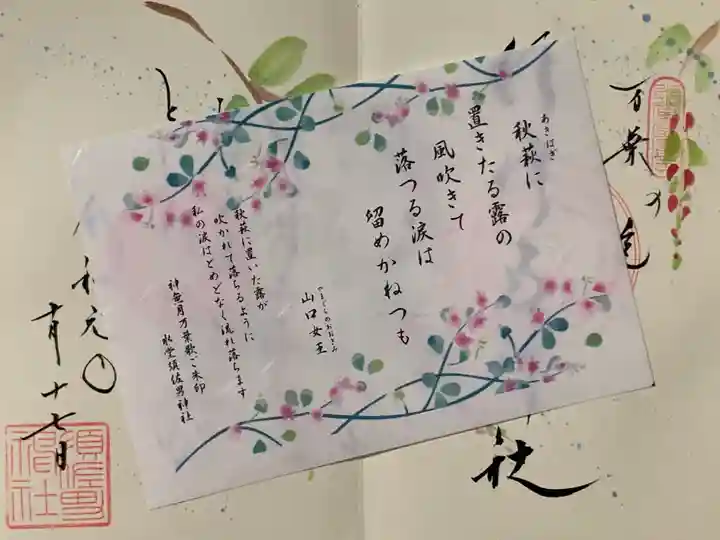 万葉の
あきはぎ
秋萩に
置きたる露の
風吹きて
落つる涙は
留めかねつも
やまぐちのおおきみ
山口女王
秋萩に置いた露が
吹かれて落ちるように
私の涙はとめどなく流れ落ちます
神無月万葉歌ご朱印
水堂須佐男神社
社
と
和元
十月十七日
須佐男
神社